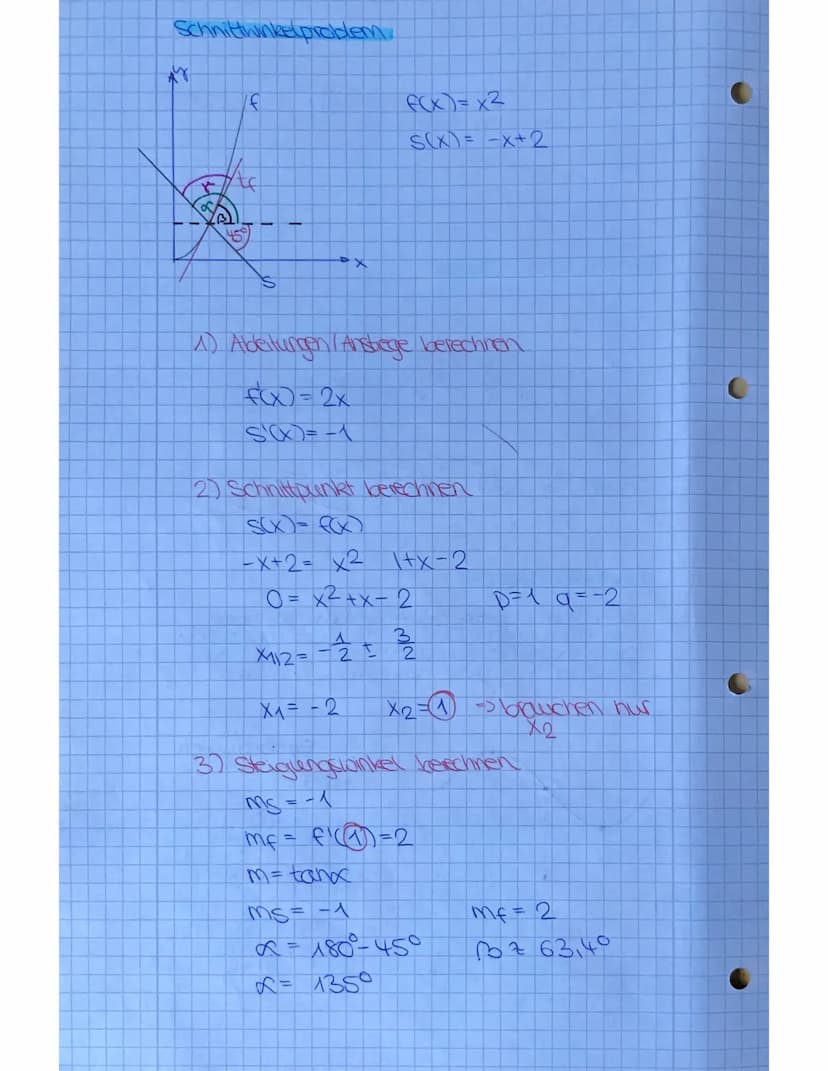 Schnittwinkelproblem
y
f
f(x) = x²
s(x) = -x+2
γ
tf
α
β
45°
x
s
1) Ableitungen/Anstiege berechnen
f'(x) = 2x
s'(x) = -1
2) Schnittpunkt berechnen
s(x) = f(x)
-x+2 = x² |+x-2
0 = x²+x-2 p=1 q=-2
x1,2 = -1/2 ± 3/2
x1 = -2 x2 = 1 → brauchen nur
x2
3) Steigungswinkel berechnen
ms = -1
mf = f'(1) = 2
m = tanα
ms = -1 mf = 2
α = 180°-45° β ≈ 63,4°
α = 135°